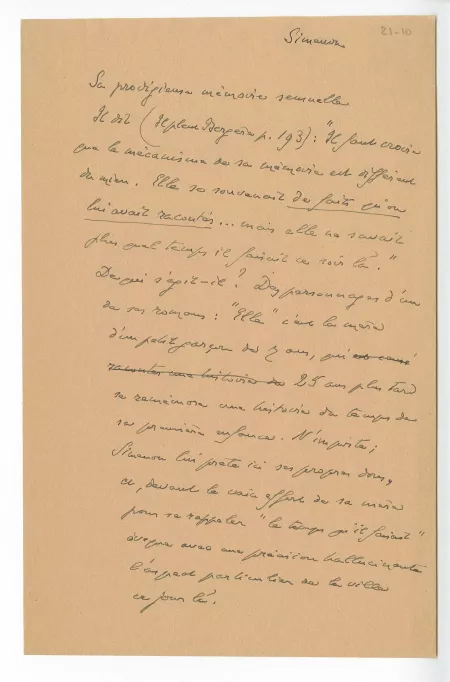 21-10
Simenon
Sa prodigieuse mémoire sensuelle
Il dit (Il pleut Bergère p. 193) : "Il faut croire
que le mécanisme de sa mémoire est différent
du mien. Elle se souvenait des faits qu'on
lui avait racontés... mais elle ne savait
plus quel temps il faisait ce soir là."
De qui s'agit-il ? Des personnages d'un
de ses romans : "Elle" c'est la mère
d'un petit garçon de 7 ans, qui
raconter une histoire de 25 ans plus tard
se remémore une histoire du temps de
sa première enfance. N'importe ;
Simenon lui prête ici ses propres dons,
et, devant le vain effort de sa mère
pour se rappeler "le temps qu'il faisait"
évoque avec une précision hallucinante
l'aspect particulier de la ville
ce jour là.